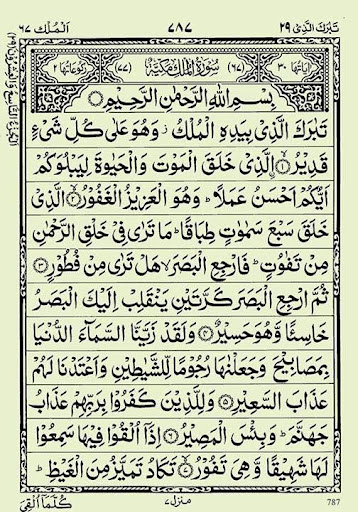 تَبٰرَكَ الَّذِیْ ۲۹
۷۸۷
اَلْمُلْك ۶۷
اٰیَاتُهَا ۳۰
(۶۷) سُوْرَةُ الْمُلْكِ مَكِّیَّةٌ (۷۷)
رُكُوْعَاتُهَا ۲
بِسْمِ اللّٰهِ الرَّحْمٰنِ الرَّحِیْمِ
تَبٰرَكَ الَّذِیْ بِیَدِهِ الْمُلْكُ ز وَهُوَ عَلٰی كُلِّ شَیْءٍ
قَدِیْرُ ۙ﴿۱﴾ الَّذِیْ خَلَقَ الْمَوْتَ وَالْحَیٰوةَ لِیَبْلُوَكُمْ
اَیُّكُمْ اَحْسَنُ عَمَلًا ؕ وَهُوَ الْعَزِیْزُ الْغَفُوْرُ ۙ﴿۲﴾ الَّذِیْ
خَلَقَ سَبْعَ سَمٰوٰتٍ طِبَاقًا ؕ مَا تَرٰی فِیْ خَلْقِ الرَّحْمٰنِ
مِنْ تَفٰوُتٍ ؕ فَارْجِعِ الْبَصَرَ ۙ هَلْ تَرٰی مِنْ فُطُوْرٍ ﴿۳﴾
ثُمَّ ارْجِعِ الْبَصَرَ كَرَّتَیْنِ یَنْقَلِبْ اِلَیْكَ الْبَصَرُ
خَاسِئًا وَّهُوَ حَسِیْرٌ ﴿۴﴾ وَلَقَدْ زَیَّنَّا السَّمَآءَ الدُّنْیَا
بِمَصَابِیْحَ وَجَعَلْنٰهَا رُجُوْمًا لِّلشَّیٰطِیْنِ وَاَعْتَدْنَا لَهُمْ
عَذَابَ السَّعِیْرِ ﴿۵﴾ وَلِلَّذِیْنَ كَفَرُوْا بِرَبِّهِمْ عَذَابُ
جَهَنَّمَ ؕ وَبِئْسَ الْمَصِیْرُ ﴿۶﴾ اِذَاۤ اُلْقُوْا فِیْهَا سَمِعُوْا
لَهَا شَهِیْقًا وَّهِیَ تَفُوْرُ ۙ﴿۷﴾ تَكَادُ تَمَیَّزُ مِنَ الْغَیْظِ ؕ
كُلَّمَاۤ اُلْقِیَ
منزل ۷
787